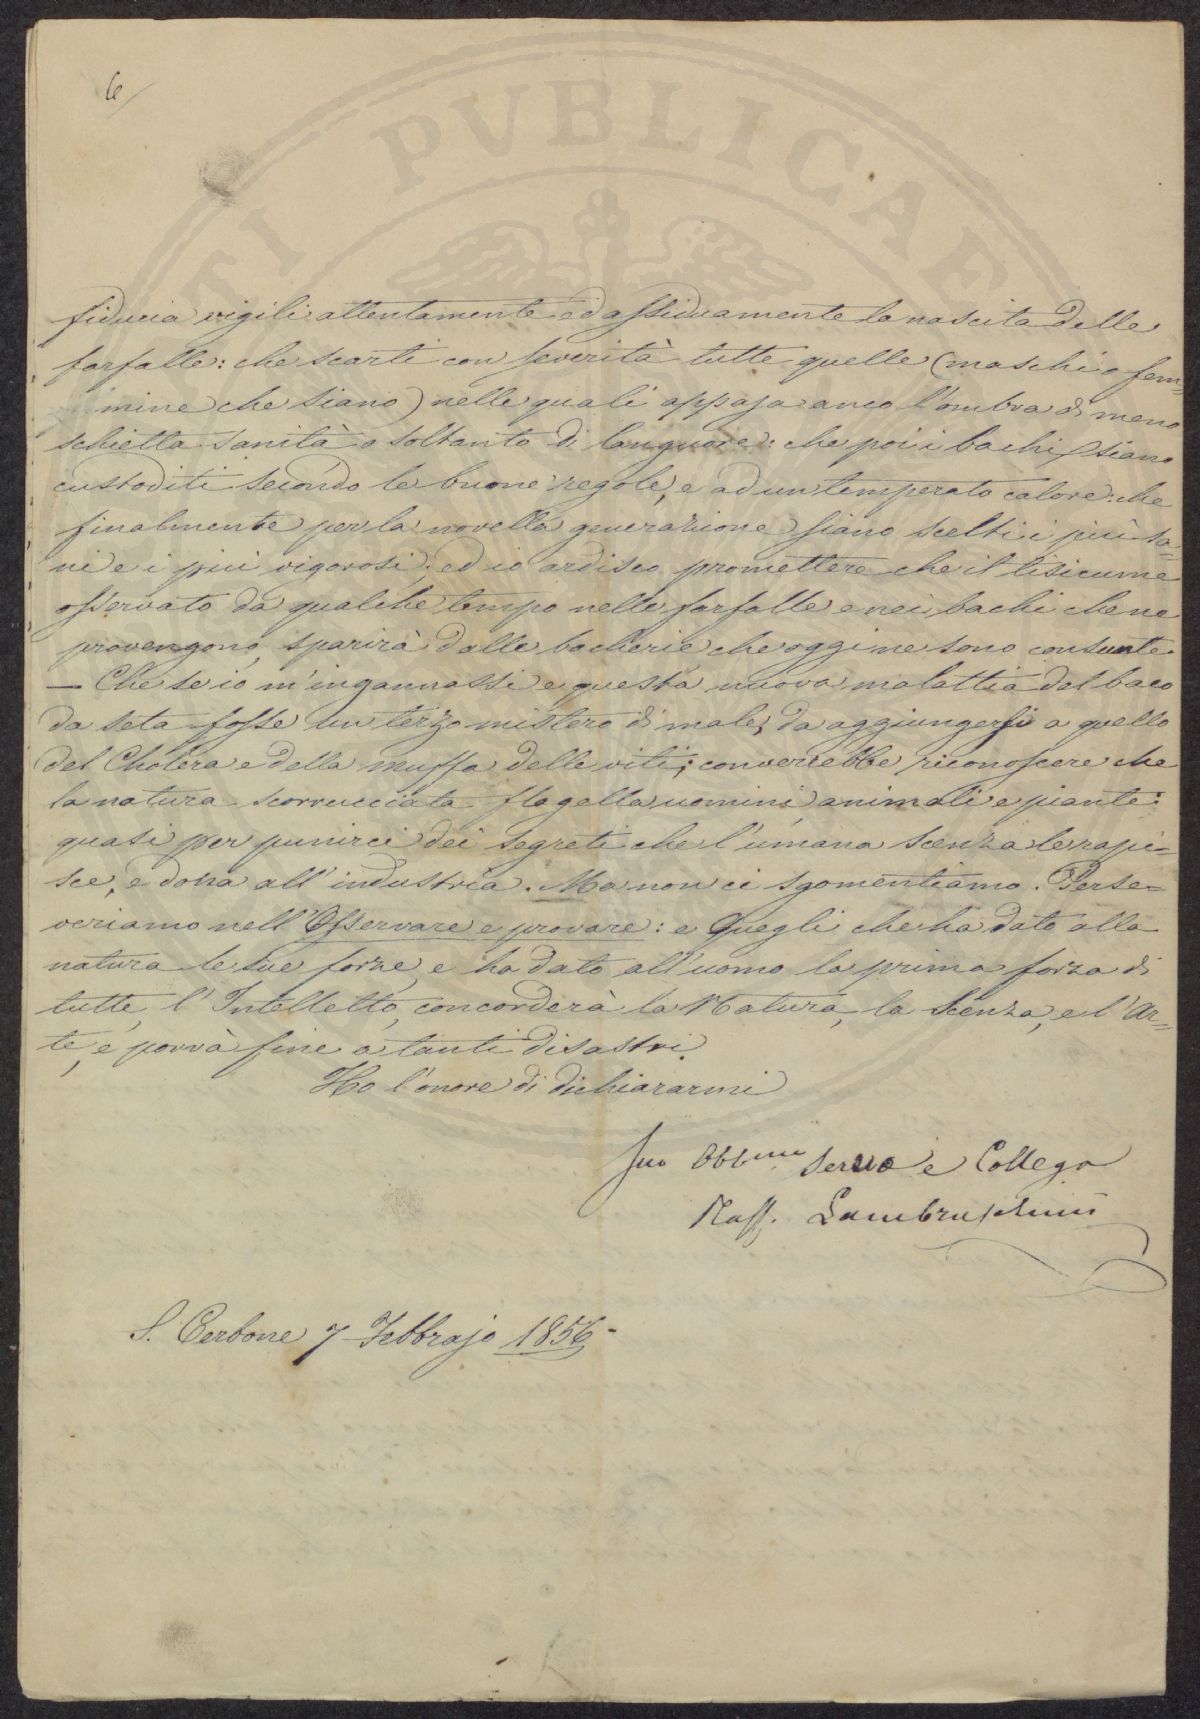 6
TI PVBLICAE
fiducia vigili attentamente ed assiduamente la nascita delle
farfalle: che scarti con severità tutte quelle (maschi o fem=
mine che siano) nelle quali appaja anco l'ombra di meno
schietta sanità o soltanto di languore: che poi i bachi siano
custoditi secondo le buone regole, e ad un temperato calore: che
finalmente per la novella generazione siano scelti i più sa=
ni e i più vigorosi; ed io ardisco promettere che il tisicume
osservato da qualche tempo nelle farfalle e nei bachi che ne
provengono, sparirà dalle bacherie che oggi ne sono consunte.
— Che se io m'ingannassi e questa nuova malattia del baco
da seta fosse un terzo mistero di male, da aggiungersi a quello
del Cholera e della muffa delle viti; converrebbe riconoscere che
la natura scorrucciata flagella uomini, animali e piante:
quasi per punirci dei segreti che l'umana scenza le rapi=
sce, e dona all'industria. Ma non ci sgomentiamo. Perse=
veriamo nell'Osservare e provare: e Quegli che ha dato alla
natura le sue forze, e ha dato all'uomo la prima forza di
tutte, l'Intelletto, concorderà la Natura, la Scenza, e l'Ar=
te, e porrà fine a tanti disastri.
Ho l'onore di dichiararmi
Suo Obbmo servo e Collega
Raff. Lambruschini
S. Cerbone 7 Febbrajo 1856.